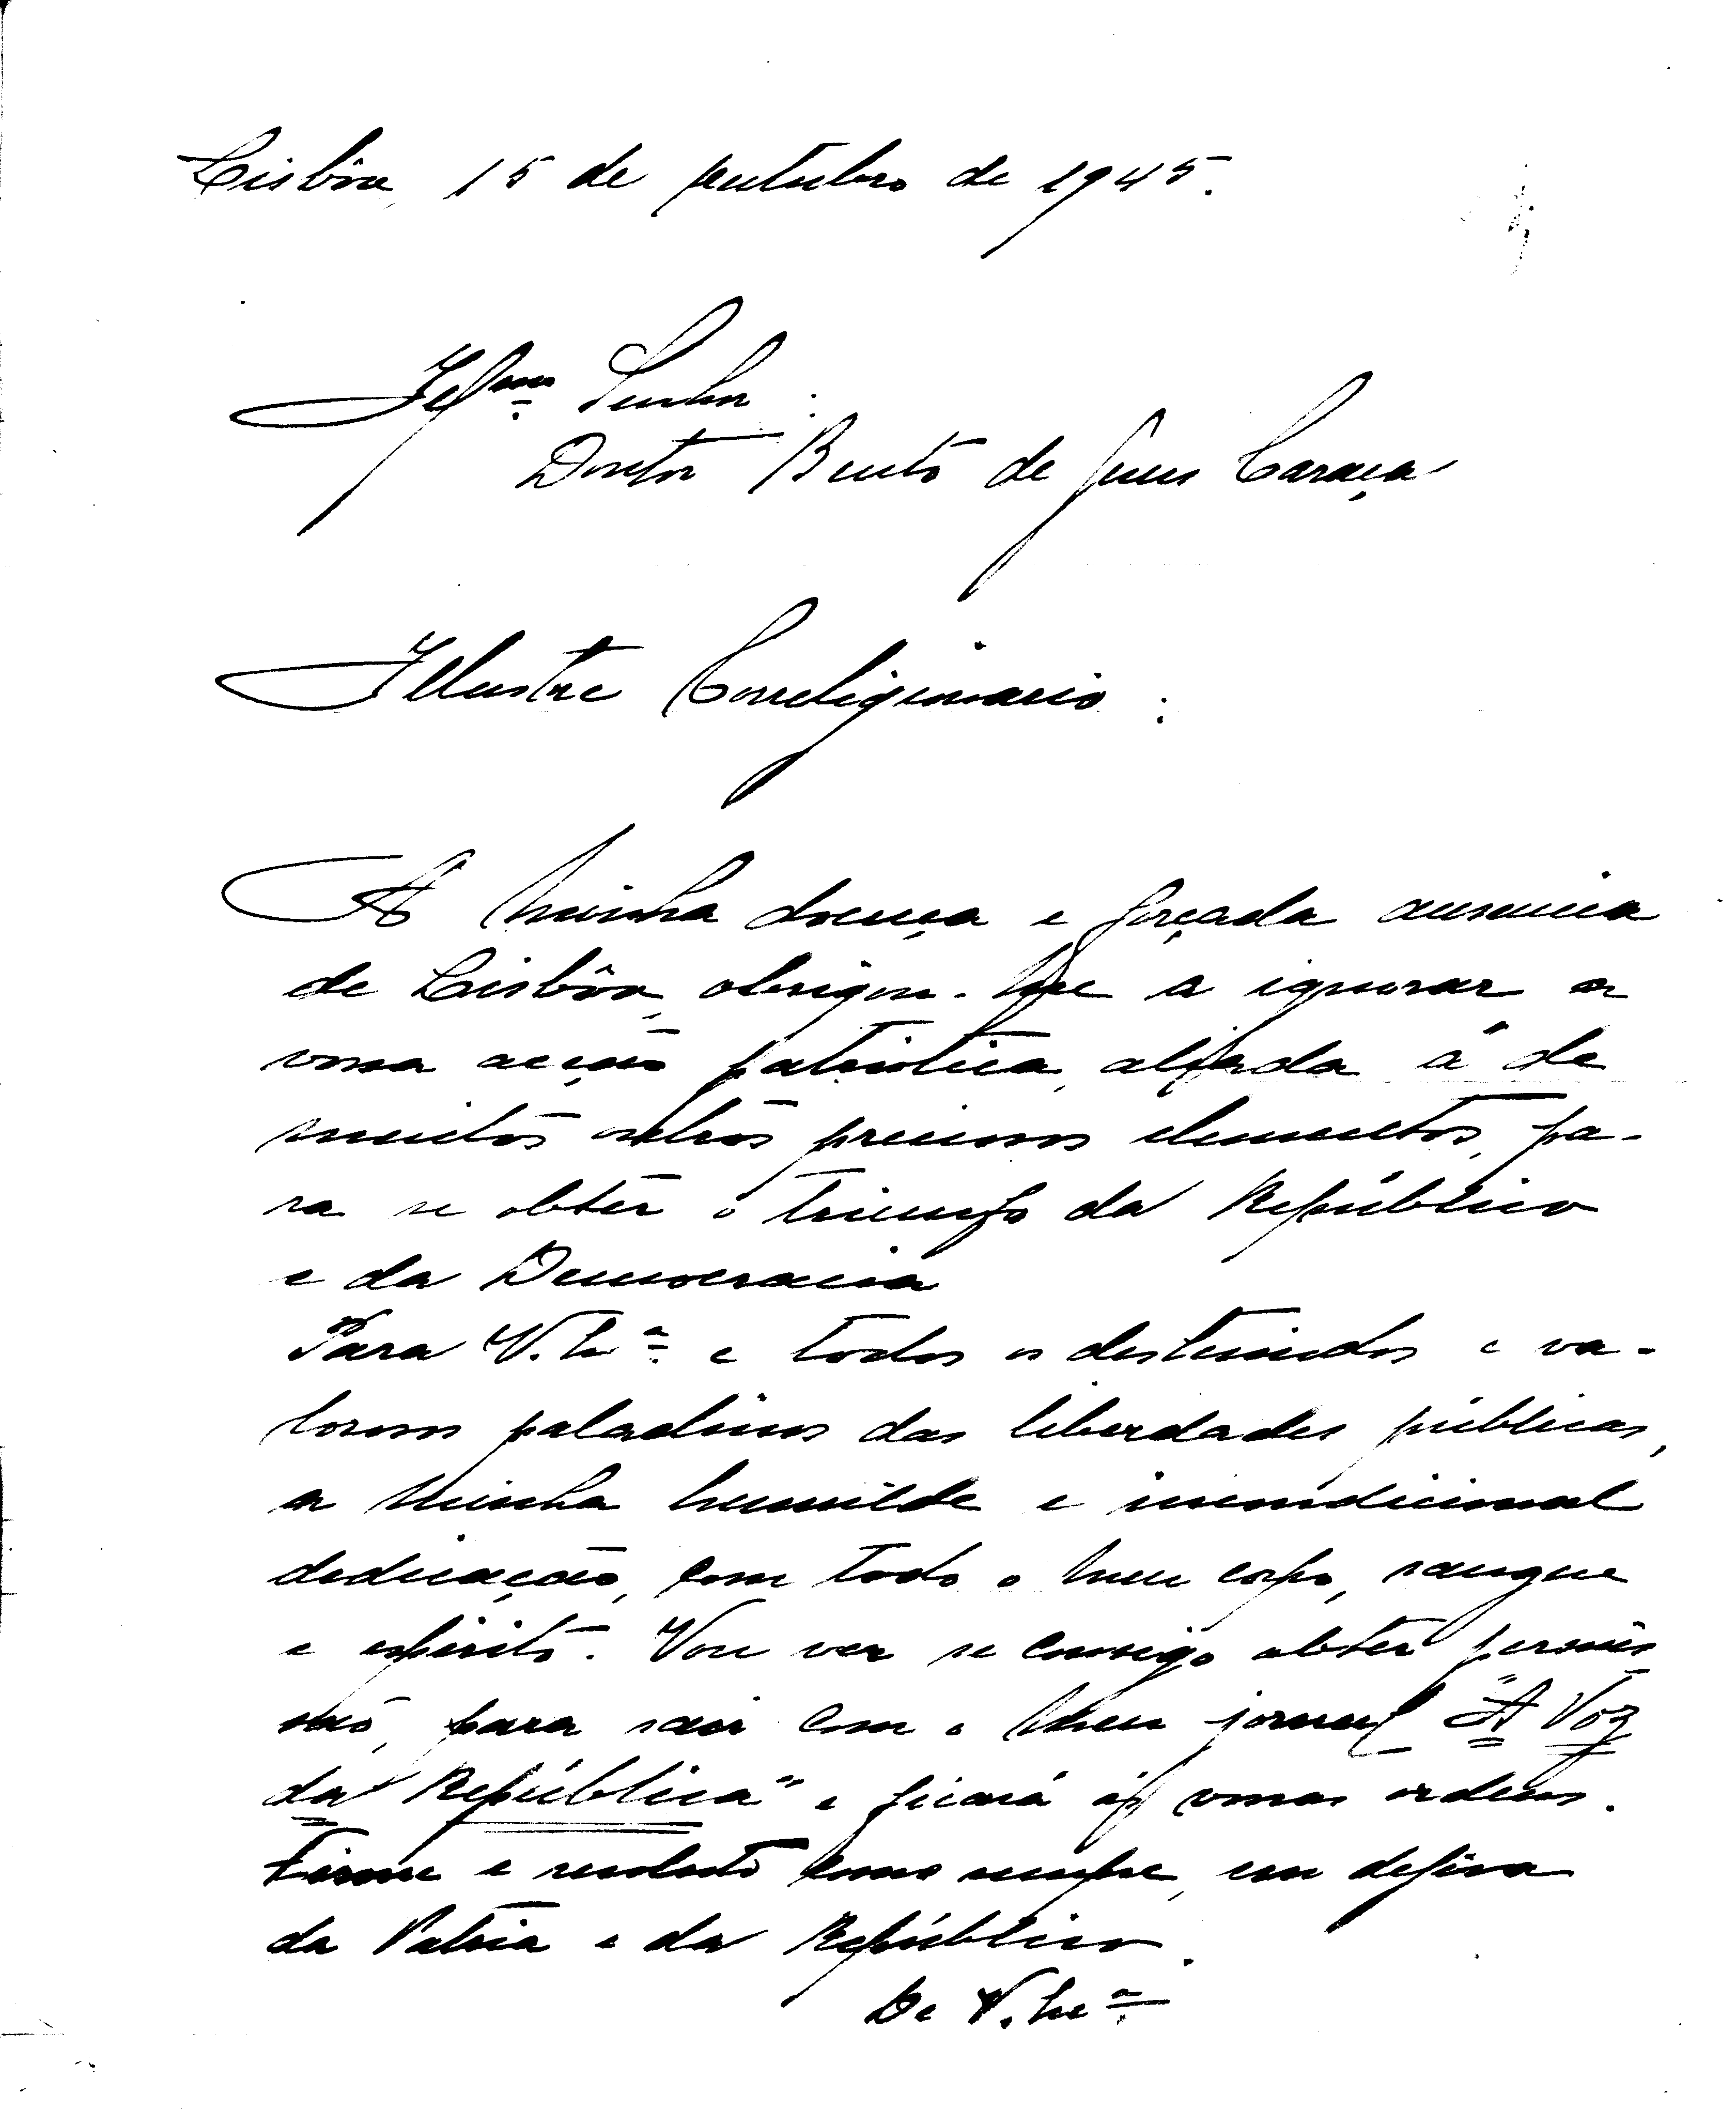 Lisbôa, 15 de outubro de 1945.
Illmo Senhor:
Doutor Bento de Jesus Caraça
Illustre Correligionario:
A minha doença e forçada ausencia
de Lisbôa, obrigou-me a ignorar a
vossa acção patriotica, aliada á de
muitos outros preciosos elementos, pa-
ra se obter o triunfo da República
e da Democracia
Para V. Exª e todos os destemidos e va-
lorosos paladinos das liberdades públicas,
a minha humilde e incondicional
dedicação, com todo o meu corpo, sangue
e espirito. Vou ver se consigo obter permis
são, para sair com o meu jornal "A Voz
da República" e ficará ás vossas ordens.
Firme e resoluto como sempre, em defesa
da Patria e da República.
De V. Exª